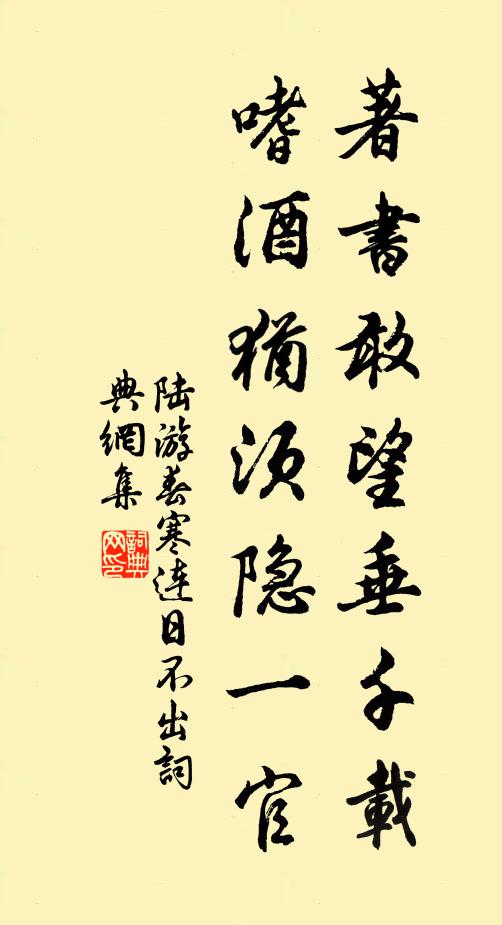 著書敢望垂千載
嗜酒猶須隐一官
陆游春寒连日不出詞
典網集
詞典
网印